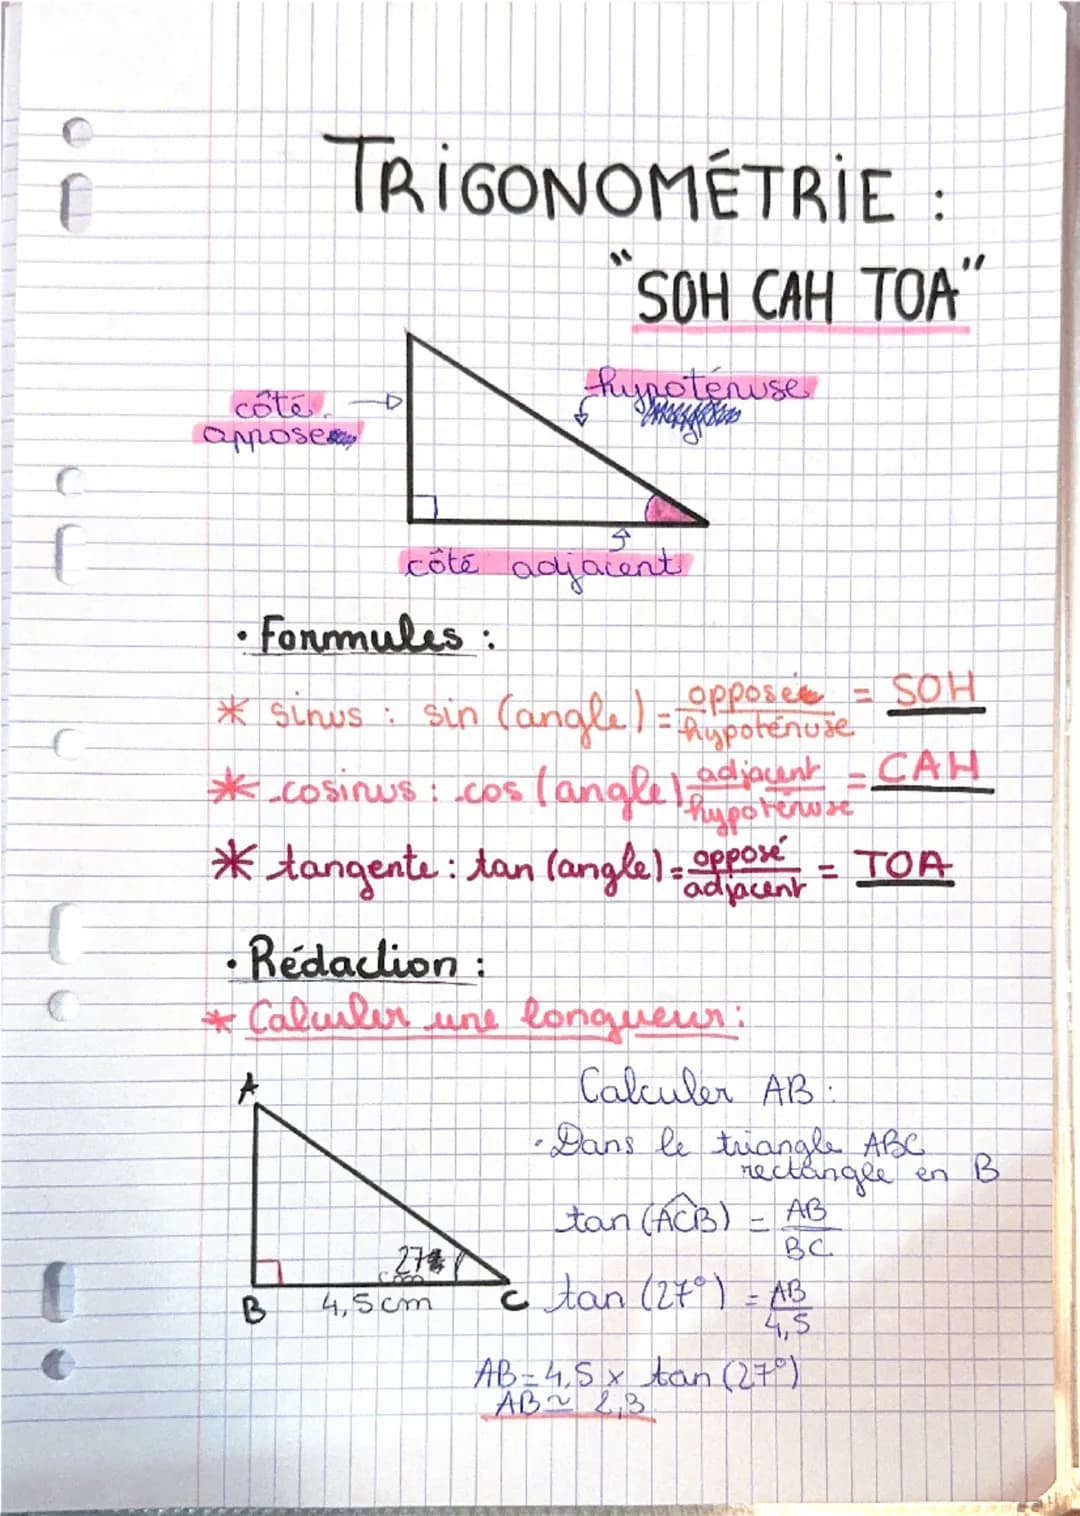 TRIGONOMÉTRIE :
"SOH CAH TOA"
hypoténuse
côté
opposé
côté adjacent
• Formules :
* sinus : sin (angle) = opposé / hypoténuse = SOH
* cosinus : cos (angle) = adjacent / hypoténuse = CAH
* tangente : tan (angle) = opposé / adjacent = TOA
• Rédaction :
* Calculer une longueur :
A
Calculer AB :
• Dans le triangle ABC
rectangle en B
tan (ACB) = AB / BC
27°
B 4,5 cm C
tan (27°) = AB / 4,5
AB = 4,5 x tan (27°)
AB ≈ 2,3